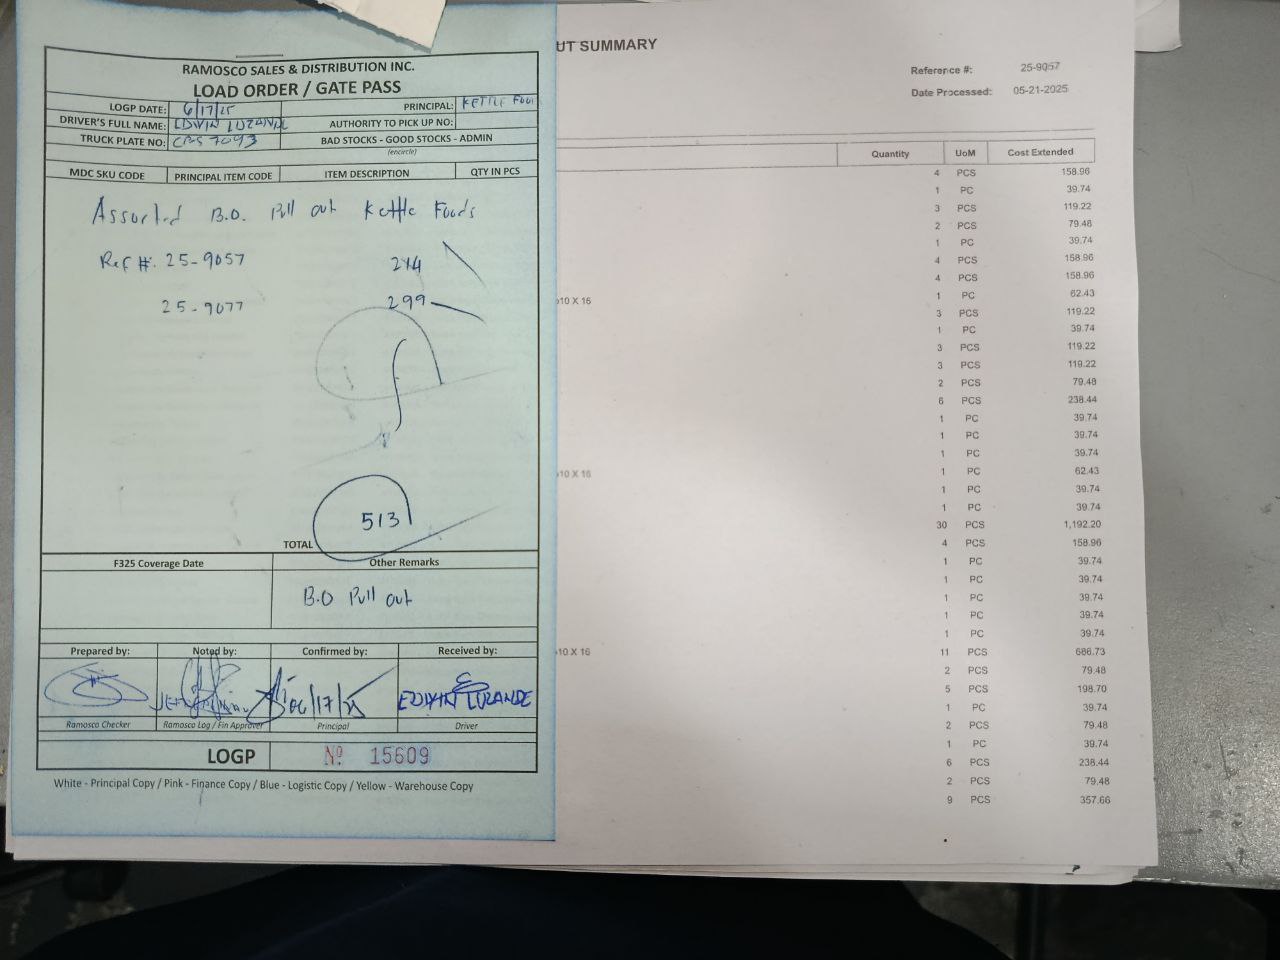 RAMOSCO SALES & DISTRIBUTION INC.
LOAD ORDER / GATE PASS
LOGP DATE: 6/17/25 PRINCIPAL: KETTLE FOOD
DRIVER'S FULL NAME: EDWIN LUZANDE AUTHORITY TO PICK UP NO:
TRUCK PLATE NO: BAD STOCKS - GOOD STOCKS - ADMIN
(encircle)
MDC SKU CODE PRINCIPAL ITEM CODE ITEM DESCRIPTION QTY IN PCS
Assorted B.O. Pull out Kettle Foods
Ref #: 25-9057 214
25-9077 299
513
TOTAL
F325 Coverage Date Other Remarks
B.O Pull out
Prepared by: Noted by: Confirmed by: Received by:
06/17/25 EDWIN LUZANDE
Ramosco Checker Ramosco Log / Fin Approver Principal Driver
LOGP Nº 15609
White - Principal Copy / Pink - Finance Copy / Blue - Logistic Copy / Yellow - Warehouse Copy
UT SUMMARY
Reference #: 25-9057
Date Processed: 05-21-2025
Quantity UoM Cost Extended
4 PCS 158.96
1 PC 39.74
3 PCS 119.22
2 PCS 79.48
1 PC 39.74
4 PCS 158.96
4 PCS 158.96
10 X 16 1 PC 62.43
3 PCS 119.22
1 PC 39.74
3 PCS 119.22
3 PCS 119.22
2 PCS 79.48
6 PCS 238.44
1 PC 39.74
1 PC 39.74
1 PC 39.74
10 X 16 1 PC 62.43
1 PC 39.74
1 PC 39.74
30 PCS 1,192.20
4 PCS 158.96
1 PC 39.74
1 PC 39.74
1 PC 39.74
1 PC 39.74
1 PC 39.74
10 X 16 11 PCS 686.73
2 PCS 79.48
5 PCS 198.70
1 PC 39.74
2 PCS 79.48
1 PC 39.74
6 PCS 238.44
2 PCS 79.48
9 PCS 357.66